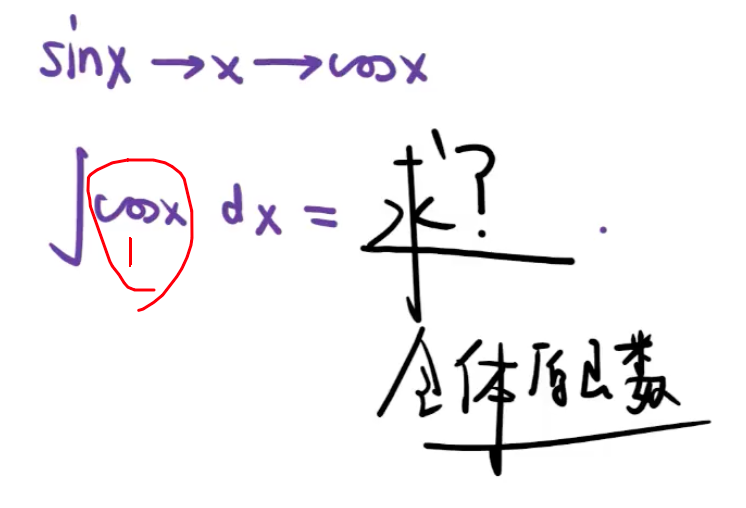 sinx → x → cosx
∫cosx dx = 求?
全体原函数